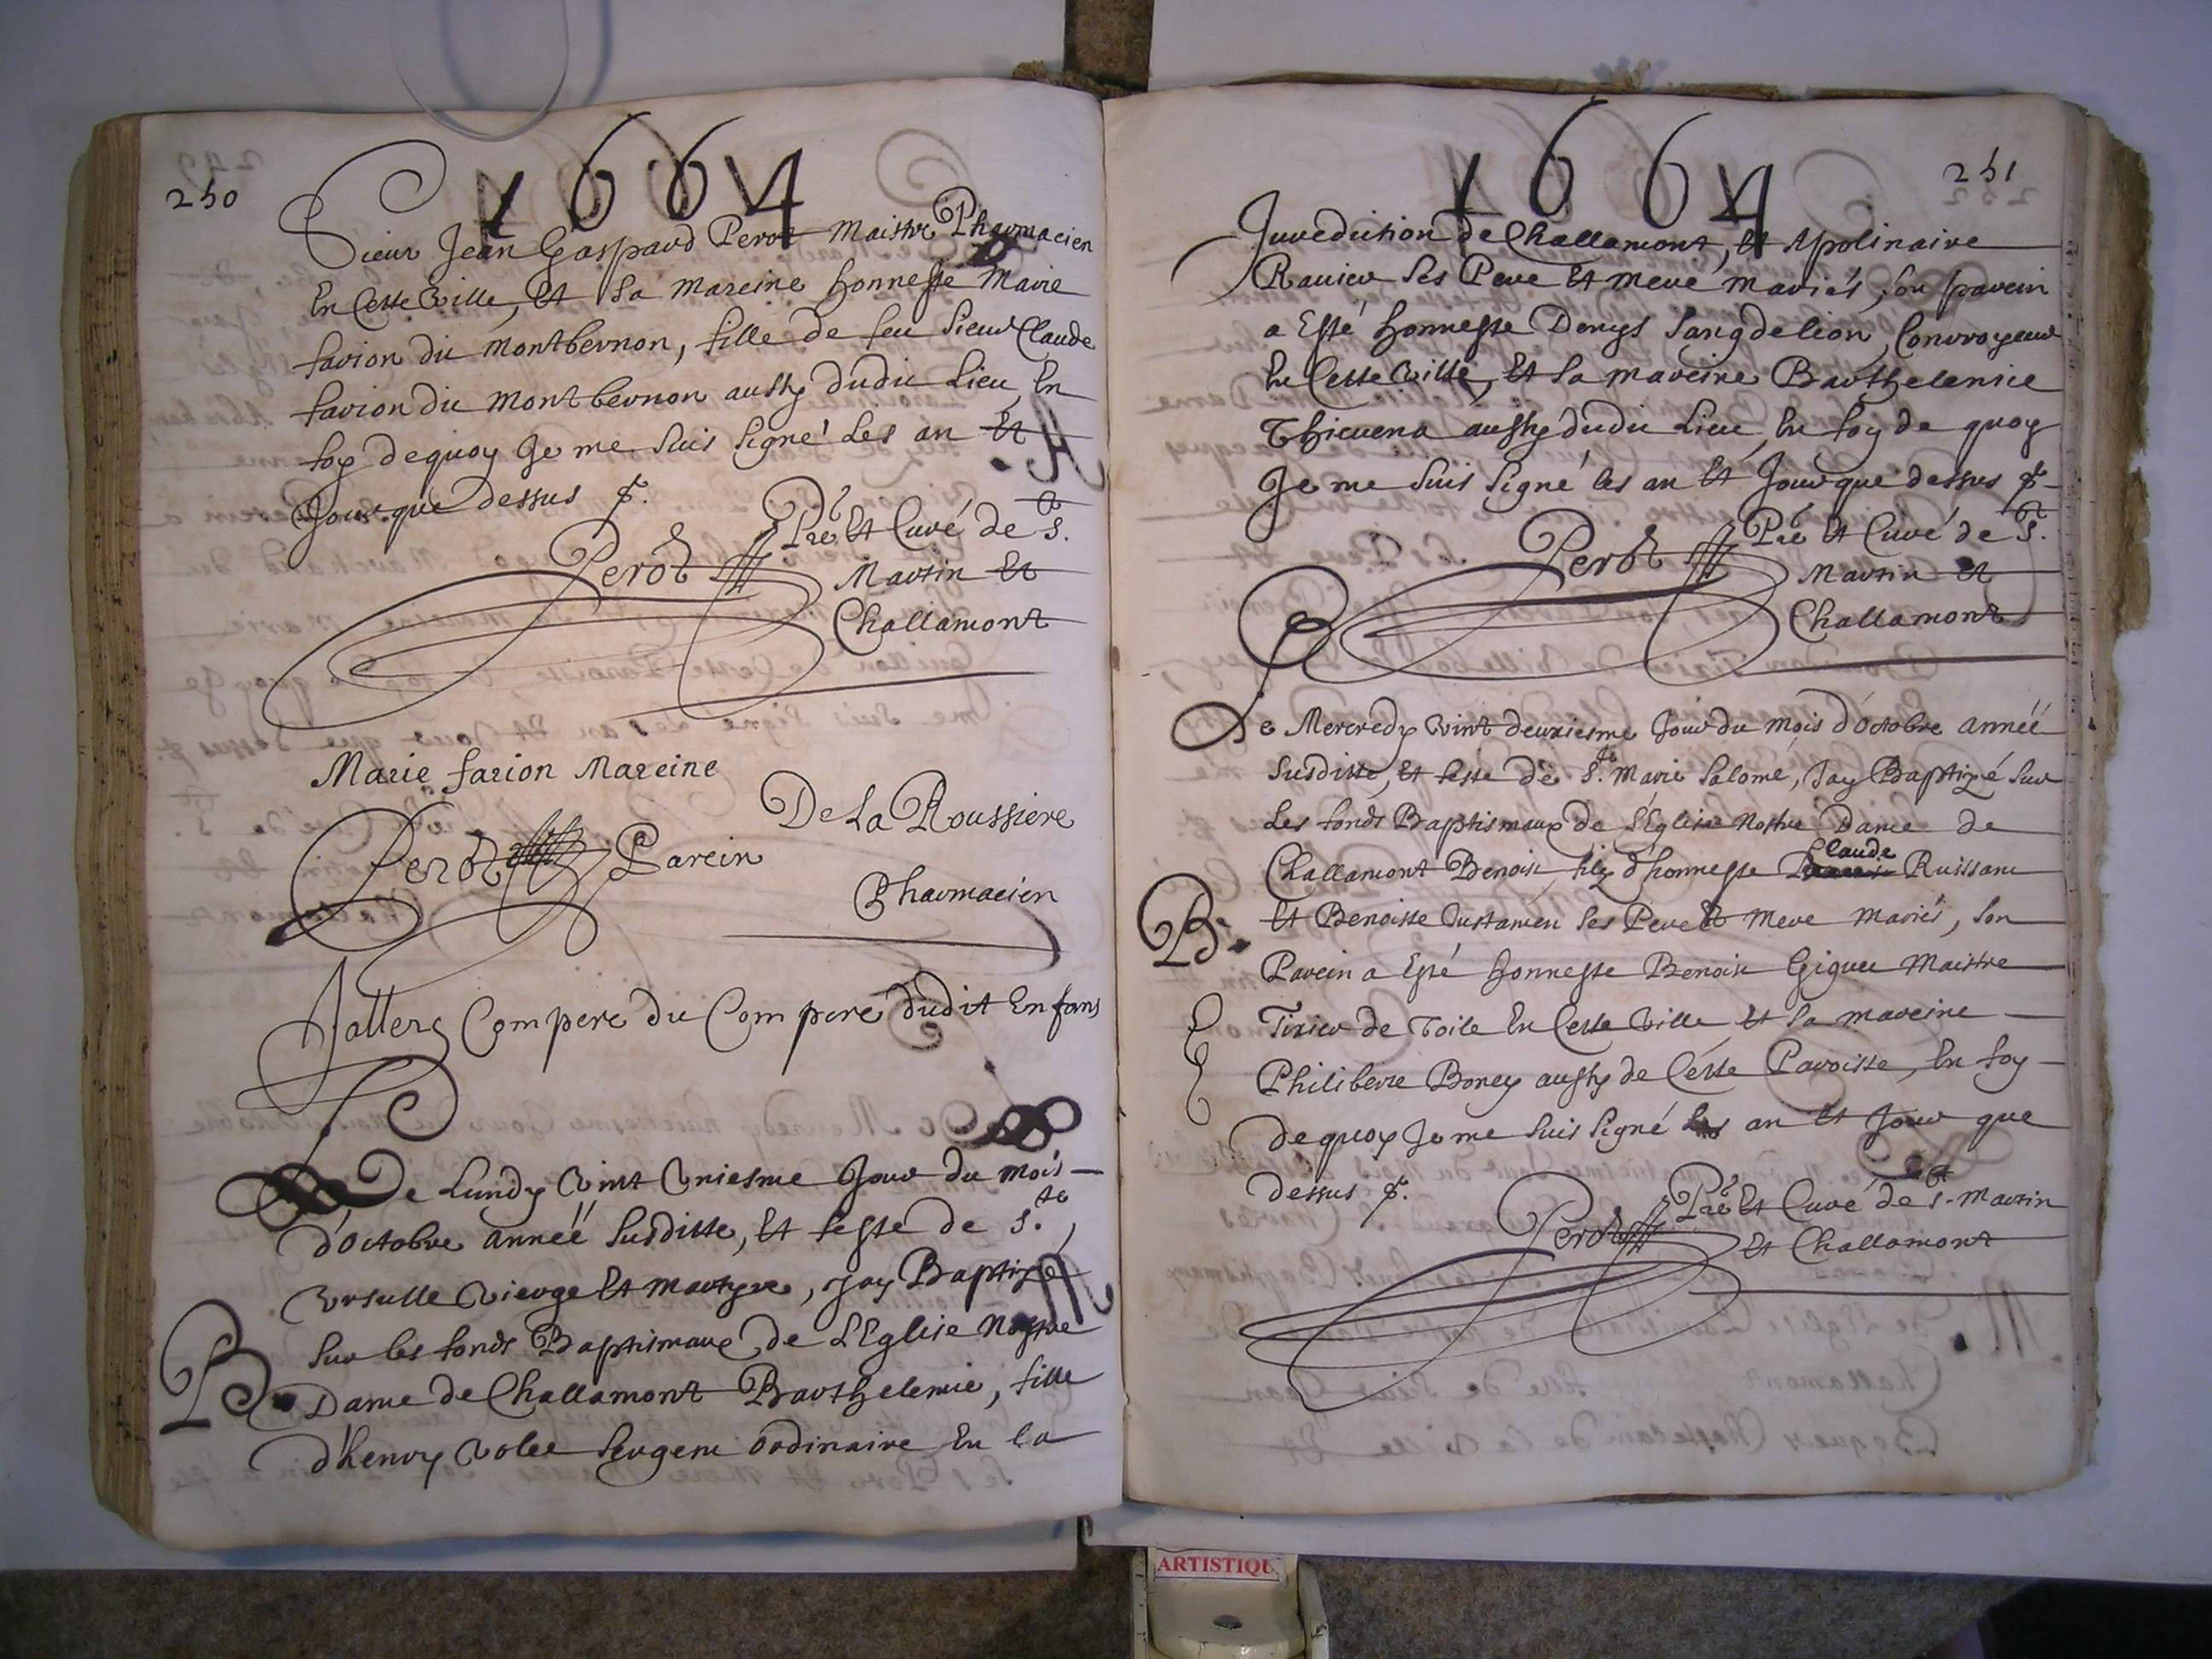 250
1664
Sieur Jean Gaspard Perot Maistre Pharmacien
En Cette Ville, Et Sa mareine honneste Marie
farion du Montbernon, fille de feu Sieur Claude
farion du Montbernon aussy dudit Lieu, En
foy dequoy Je me Suis Signé Les an Et
Jour que dessus
Perot Pbre Et Curé de St.
Martin Et
Challamont
Marie farion Mareine
De La Roussiere
Perot Parein
Pharmacien
Compere du Compere dudit Enfans
Le Lundy Vint Uniesme Jour du mois
d'Octobre année Susditte, Et feste de Ste.
Ursulle Vierge Et Martyre, Jay Baptizé
Sur les fonds Baptismaux de L'Eglise Nostre
B. Dame de Challamont Barthelemie, fille
d'henry Sergent Ordinaire En la
251
1664
Juredicition de Challamont, Et Apolinaire
Ses Pere Et mere mariés, Son parein
a Esté honneste Denys Sangdelion, Convroyeur
En Cette Ville, Et Sa mareine Barthelemie
aussy dudit Lieu, En foy de quoy
Je me Suis Signé les an Et Jour que dessus
Perot Pbre Et Curé de St.
Martin Et
Challamont
Le Mercredy Vint deuxiesme Jour du mois d'Octobre année
Susditte, Et feste de Ste. Marie Salomé, Jay Baptizé Sur
Les fonds Baptismaux de L'Eglise Nostre Dame de
Challamont Benoist, filz d'honneste Claude
B. Et Benoiste Ses Pere Et mere mariés, Son
Parein a Esté honneste Benoist Maistre
Tixier de Toile En Cette Ville Et Sa mareine
Philiberte aussy de Cette Paroisse, En foy
dequoy Je me Suis Signé Les an Et Jour que
dessus
Perot Pbre Et Curé de St. Martin
Et Challamont
ARTISTIQU